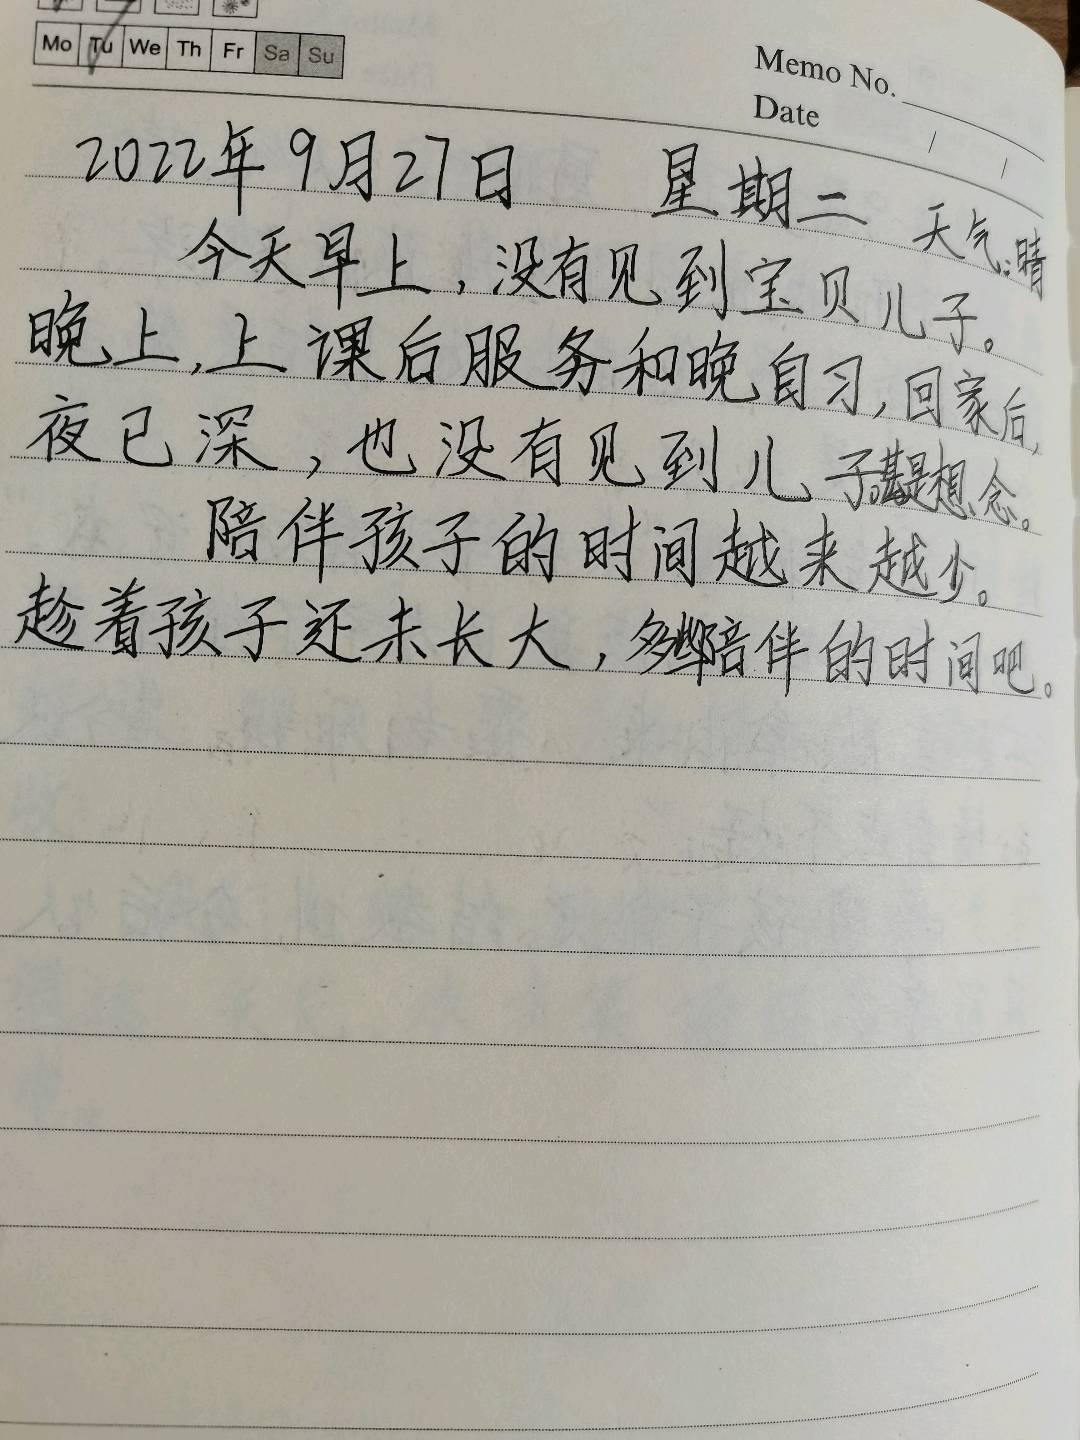 Mo Tu We Th Fr Sa Su
Memo No.
Date / /
2022年9月27日 星期二 天气:晴
今天早上,没有见到宝贝儿子。
晚上,上课后服务和晚自习,回家后,
夜已深,也没有见到儿子。甚是想念。
陪伴孩子的时间越来越少。
趁着孩子还未长大,多些陪伴的时间吧。